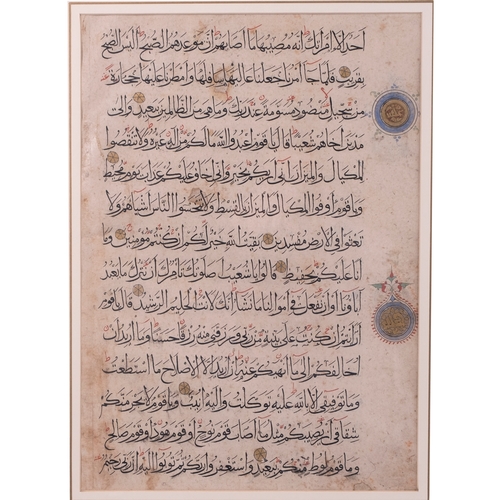 احد الا امراتك انه مصيبها ما اصابهم ان موعدهم الصبح اليس الصبح
بقريب فلما جا امرنا جعلنا عاليها سافلها وامطرنا عليها حجارة
من سجيل منضود مسومة عند ربك وما هي من الظالمين ببعيد والى
مدين اخاهم شعيبا قال يا قوم اعبدوا الله مالكم من اله غيره ولا تنقصوا
المكيال والميزان انى اريكم بخير وانى اخاف عليكم عذاب يوم محيط
ويا قوم اوفوا المكيال والميزان بالقسط ولا تبخسوا الناس اشياهم ولا
تعثوا فى الارض مفسدين بقيت الله خير لكم ان كنتم مومنين وما
انا عليكم بحفيظ قالوا يا شعيب اصلوتك تامرك ان نترك ما يعبد
اباونا او ان نفعل فى اموالنا ما نشا انك لانت الحليم الرشيد قال يا قوم
ارايتم ان كنت على بينة من ربى ورزقنى منه رزقا حسنا وما اريد ان
اخالفكم الى ما انهيكم عنه ان اريد الا الاصلاح ما استطعت
وما توفيقى الا بالله عليه توكلت واليه انيب ويا قوم لا يجرمنكم
شقاقى ان يصيبكم مثل ما اصاب قوم نوح او قوم هود او قوم صالح
وما قوم لوط منكم ببعيد واستغفروا ربكم ثم توبوا اليه ان ربى رحيم